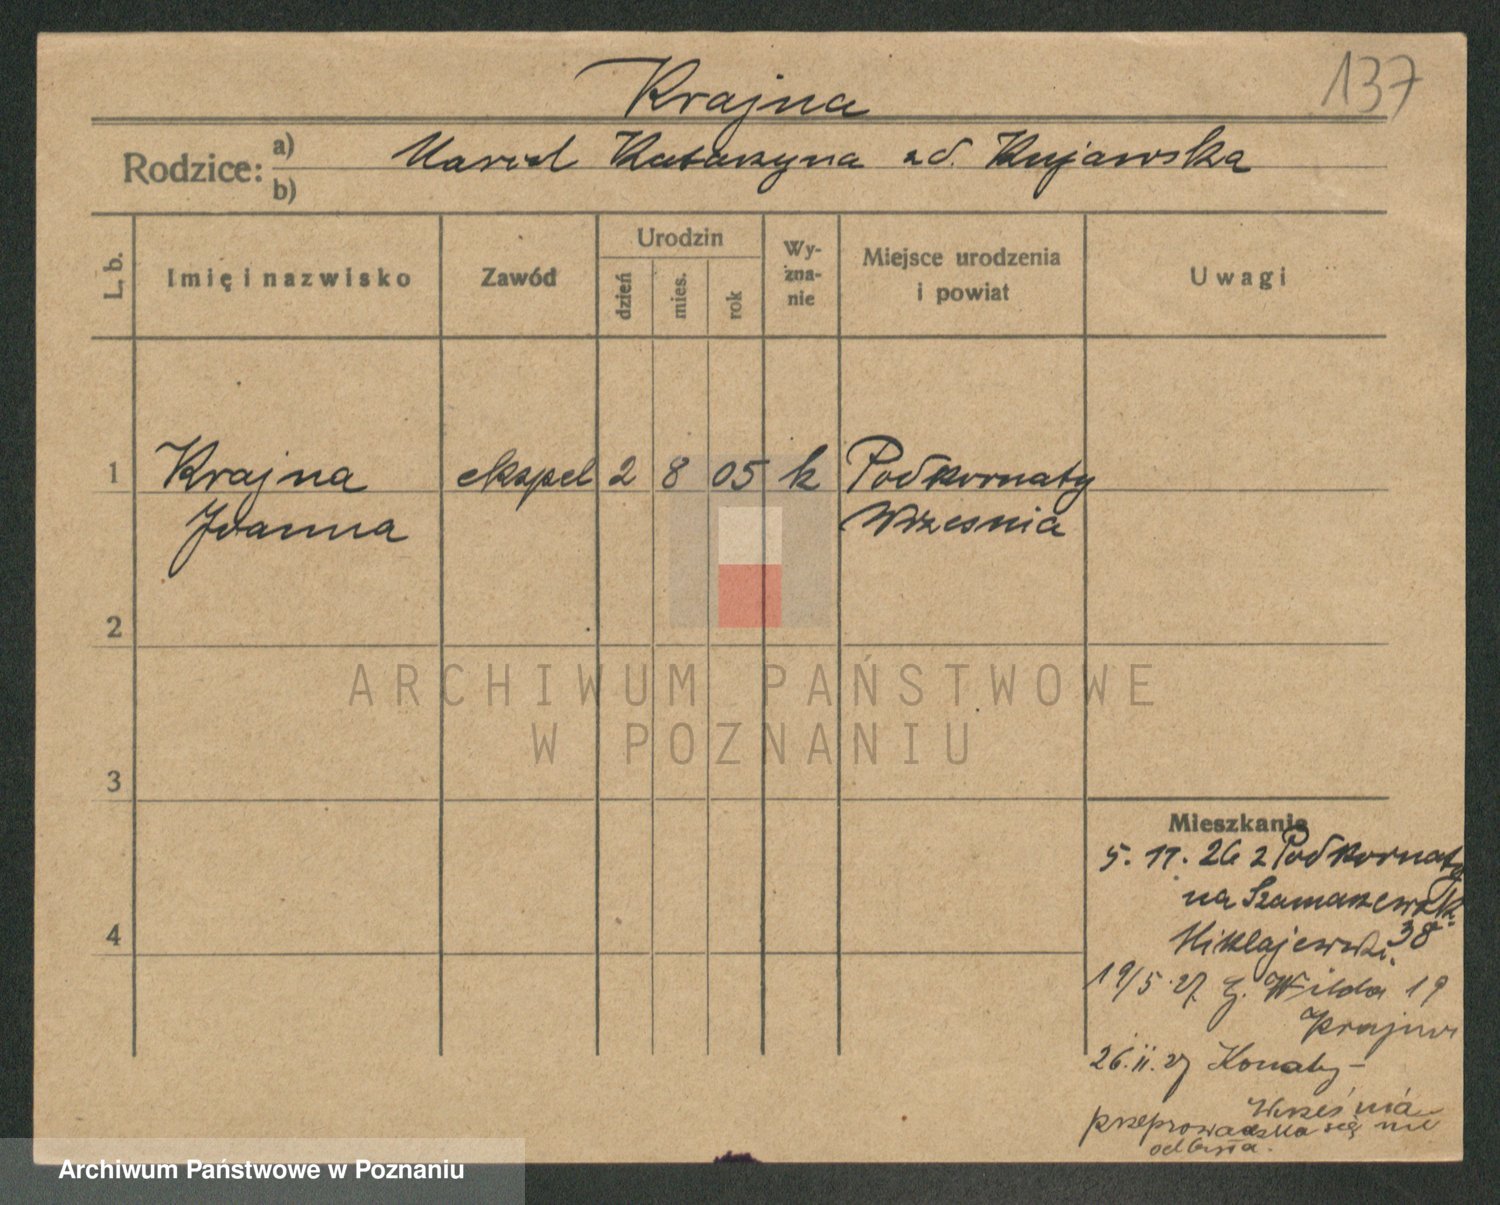 137
Krajna
Rodzice: a) b)
Katarzyna zd. Kujawska
L. b.
Imię i nazwisko
Zawód
Urodzin
dzień
mies.
rok
Wy-
zna-
nie
Miejsce urodzenia
i powiat
Uwagi
1 Krajna ekspel 2 8 05 k Podkornaty
Joanna Wrzesnia
2
3
4
ARCHIWUM PAŃSTWOWE
W POZNANIU
Mieszkanie
5. 11. 26 z Podkornaty
na Szamarzewsk.
38
Mikłajewski.
19/5. 27. G. Wilda 19
Krajna
26. II. 27 Konaty -
Września
przeprowadzka się nie
odbyła.
Archiwum Państwowe w Poznaniu